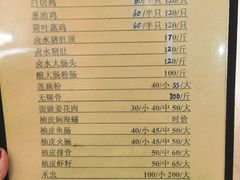 白切鸡 60/半只 120/只
葱油鸡 60/半只 120/只
荷叶蒸鸡 60/半只 120/只
卤水猪肚顶 170/斤
卤水猪肚 120/斤
卤水大肠头 120/斤
酿大肠粉肠 100/斤
莲藕粉 40/小 大
无锡骨 100/斤
面豉姜花肉 30/小 40/中 50/大
柚皮焖海鳝 时价
柚皮鱼肠 40/小 45/中 50/大
柚皮火腩 40/小 45/中 50/大
柚皮排骨 50/中 60/大
柚皮虾籽 50/中 65/大
禾虫 100/小 200/大